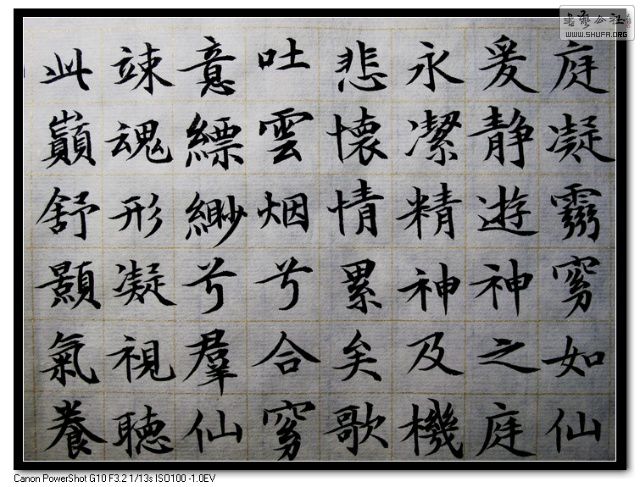 庭凝窈如仙
爰静遊神之庭
永潔精神及機
悲懷情累矣歌
吐雲烟兮合窈
意縹緲兮羣仙
竦魂形凝視聽
此巔舒顥氣養
书艺公社
WWW.SHUFA.ORG
Canon PowerShot G10 F3.2 1/13s ISO100 -1.0EV